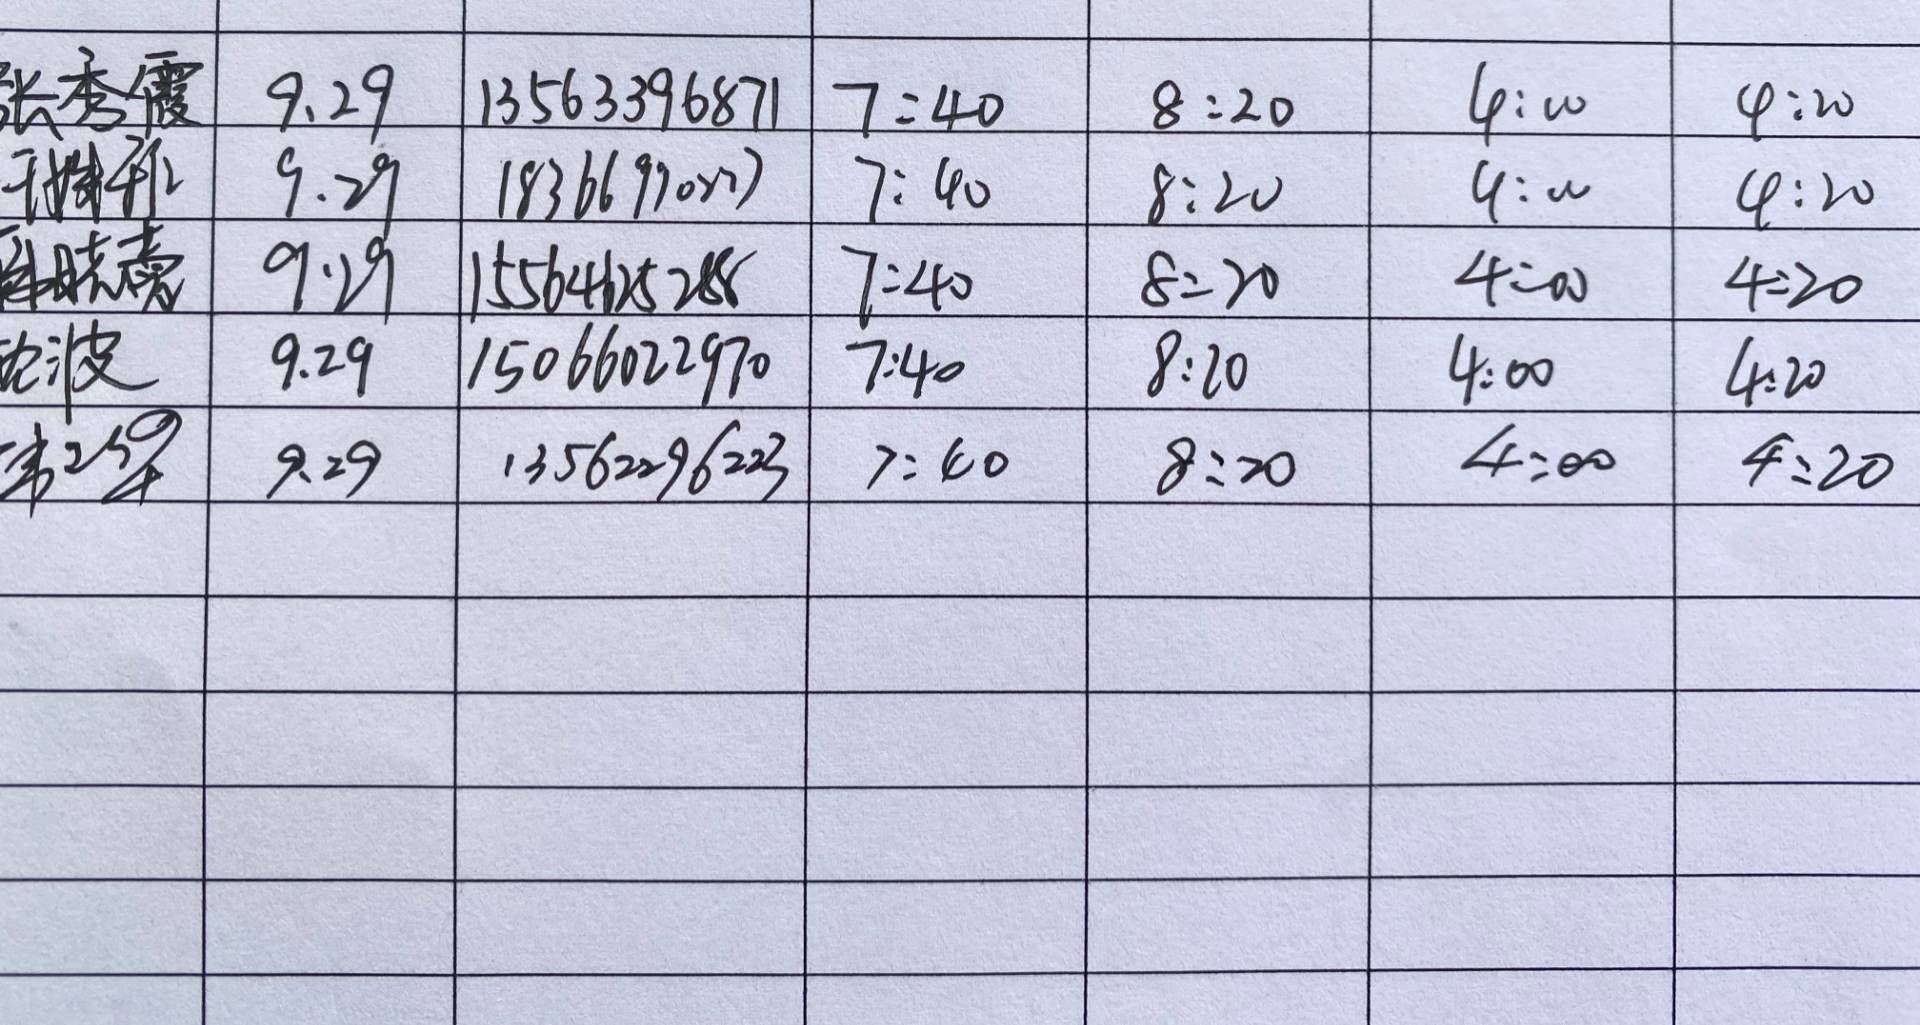 张秀霞 9.29 13563396871 7:40 8:20 4:00 4:20
9.29 7:40 8:20 4:00 4:20
晓亮 9.29 7:40 8:20 4:00 4:20
波 9.29 15066022970 7:40 8:20 4:00 4:20
9.29 13562296223 7:40 8:20 4:00 4:20